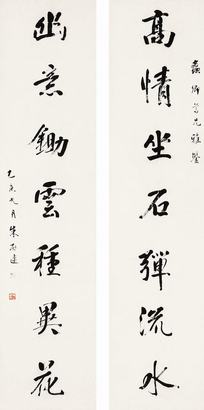 雅鑒
高情坐石彈流水
幽意鋤雲種異花
乙亥九月朱